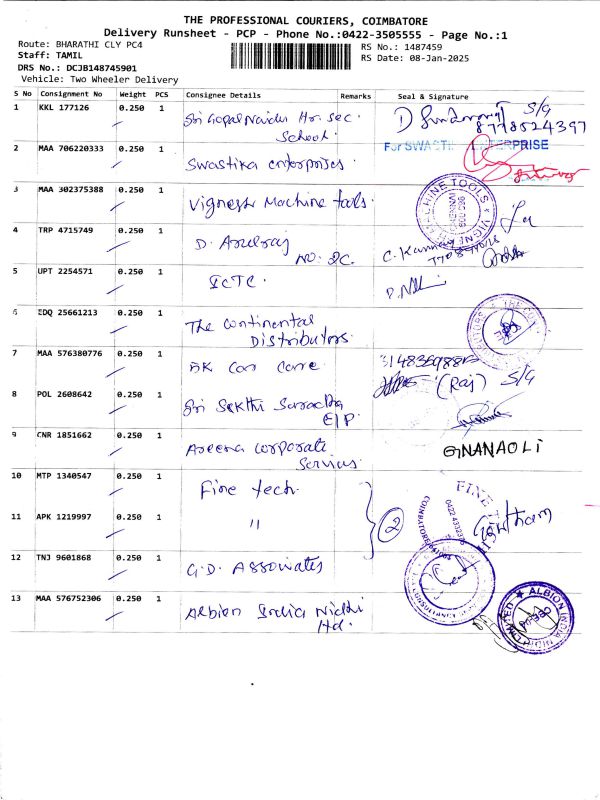 THE PROFESSIONAL COURIERS, COIMBATORE
Delivery Runsheet - PCP - Phone No.:0422-3505555 - Page No.:1
Route: BHARATHI CLY PC4
RS No.: 1487459
Staff: TAMIL
RS Date: 08-Jan-2025
DRS No.: DCJB148745901
Vehicle: Two Wheeler Delivery
S No Consignment No Weight PCS Consignee Details Remarks Seal & Signature
1 KKL 177126 0.250 1 Sri Gopal Naidu Hr. Sec. S/G
School. 8778524397
2 MAA 706220333 0.250 1 Swastika enterprises. For SWASTI ENTERPRISE
3 MAA 302375388 0.250 1 Vignesh Machine tools. VIGNESH MACHINE TOOLS
4 TRP 4715749 0.250 1 D. Arulraj
NO: 2C.
5 UPT 2254571 0.250 1 ICTC.
6 EDQ 25661213 0.250 1 The Continental
Distributors.
7 MAA 576380776 0.250 1 AK Car Care. (Raj) S/G
8 POL 2608642 0.250 1 Sri Sakthi Saradha
E/P.
9 CNR 1851662 0.250 1 Aseena Corporate GNANAOLI
Services.
10 MTP 1340547 0.250 1 Fine tech. FINE
11 APK 1219997 0.250 1 " 2 Gowtham
12 TNJ 9601868 0.250 1 G.D. Associates
13 MAA 576752306 0.250 1 Albion India Nidhi ALBION INDIA NIDHI LIMITED
ltd.